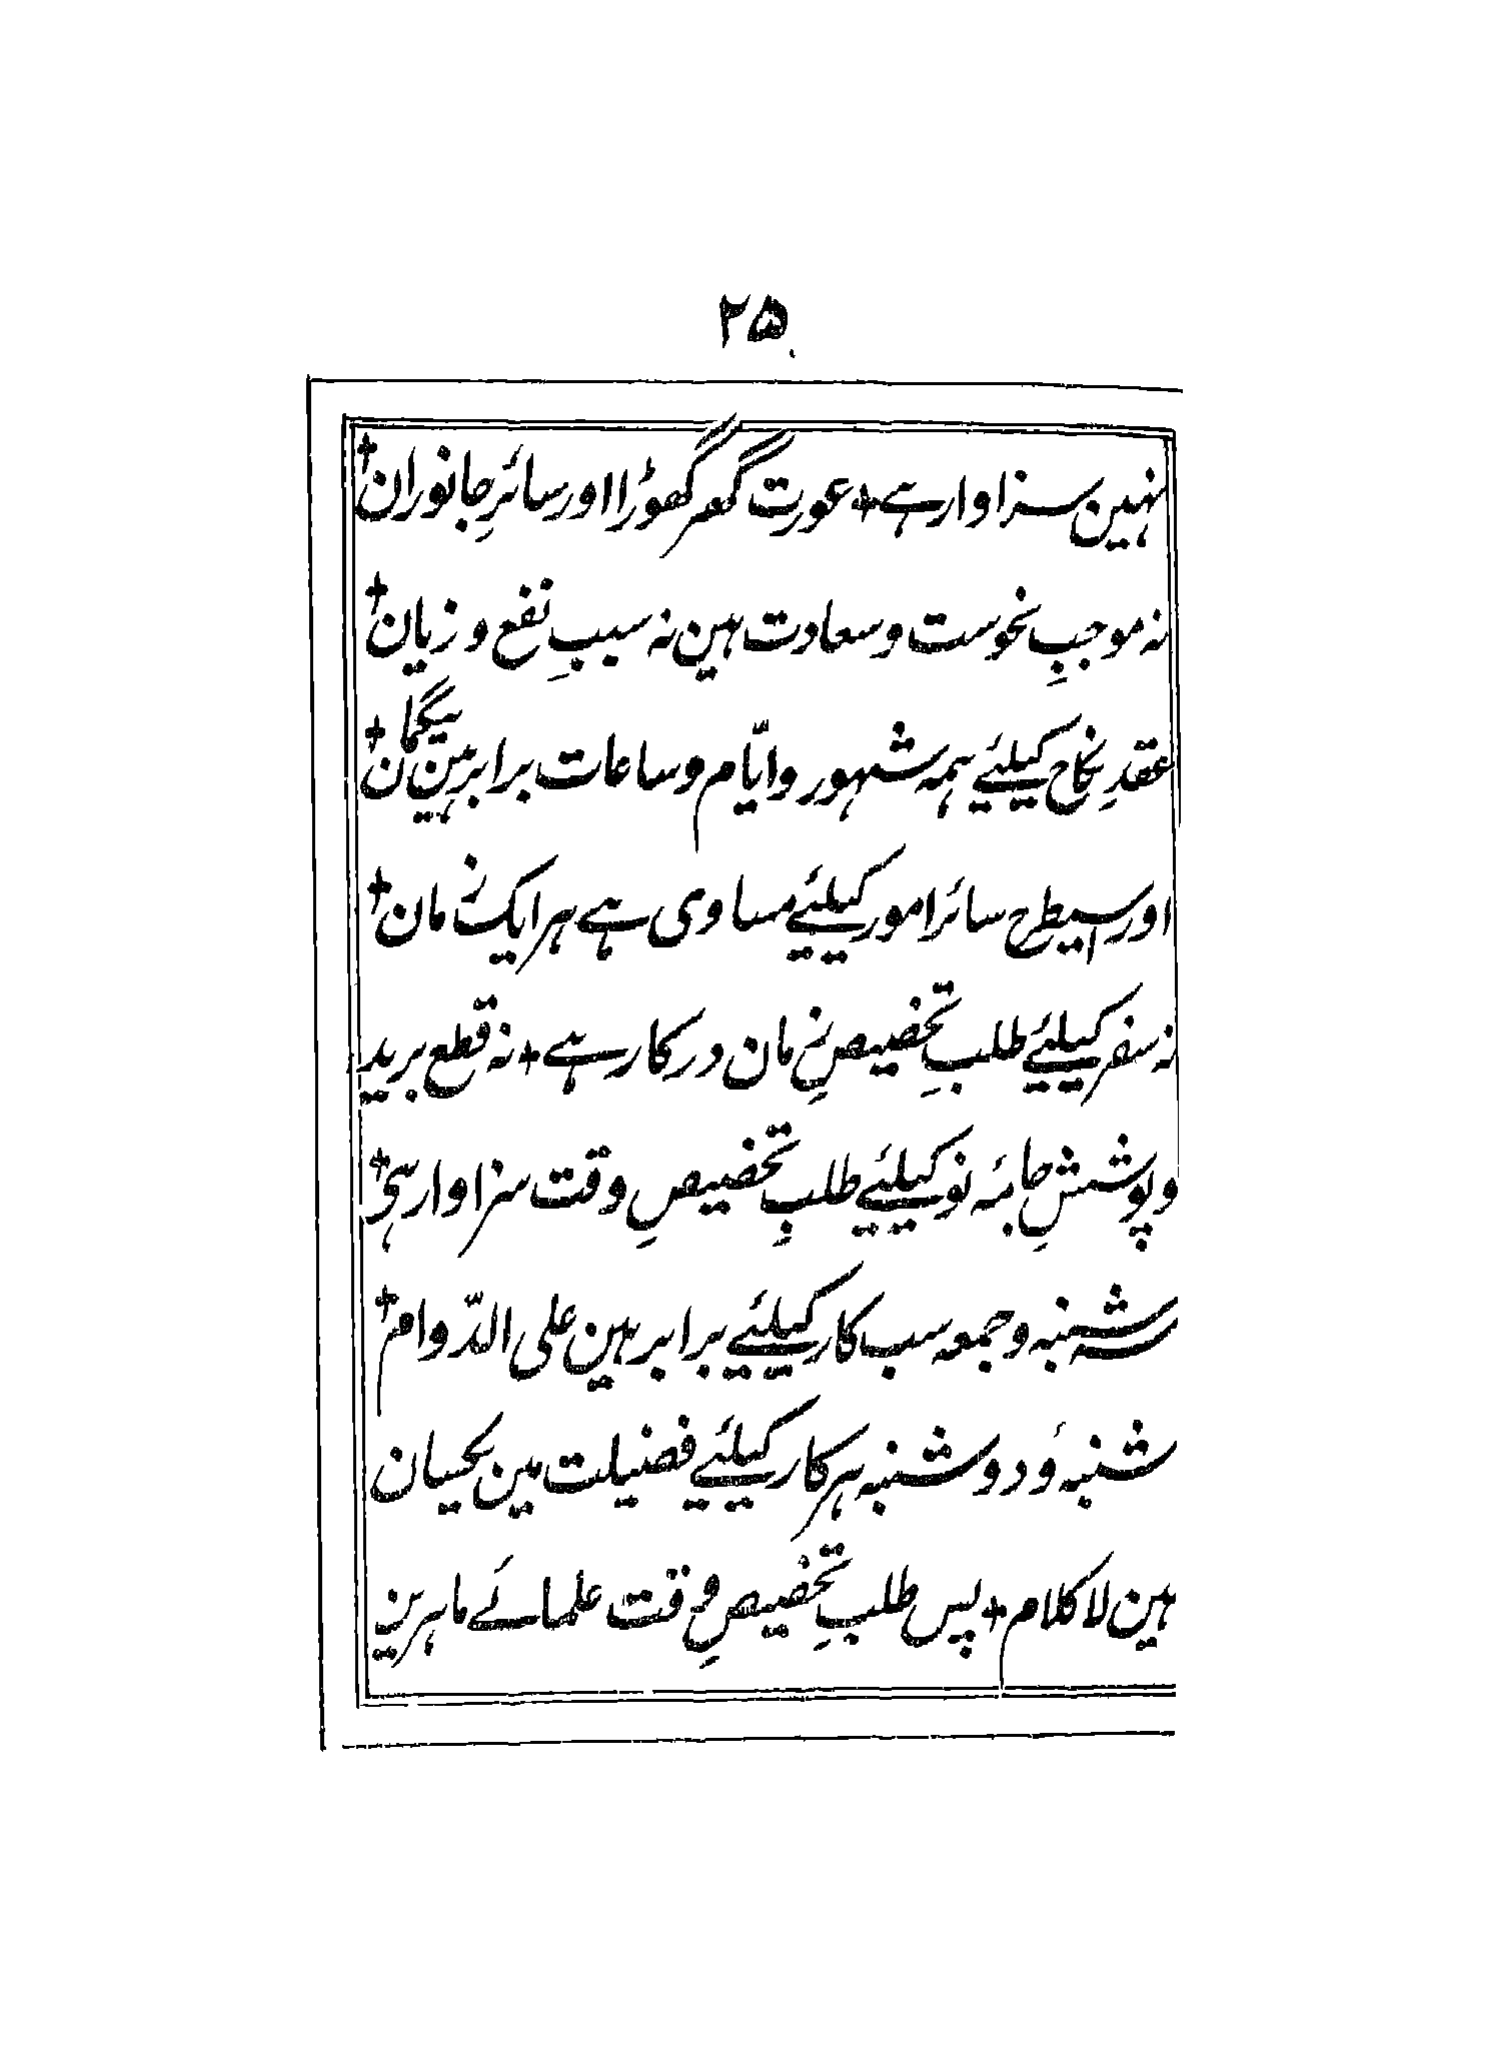 ۲۵
نہین سزاوار ہے + عورت گھر گھوڑا اور سائرِ جانوران +
نہ موجبِ نحوست و سعادت ہین نہ سببِ نفع و زیان +
عقدِ نکاح کیلئیے ہمہ شہور و ایّام و ساعات برابر ہین بیگمان +
اور اسیطرح سائر امور کیلئیے مساوی ہے ہر ایک زمان +
نہ سفر کیلئیے طلبِ تخصیصِ زمان درکار ہے + نہ قطع برید
و پوششِ جامۂ نو کیلئیے طلبِ تخصیصِ وقت سزاوار ہی +
شنبہ و جمعہ سب کار کیلئیے برابر ہین علی الدّوام +
شنبہ ؤ دوشنبہ ہر کار کیلئیے فضیلت مین یکسان
ہین لا کلام + پس طلبِ تخصیصِ وقت علمائے ماہرین